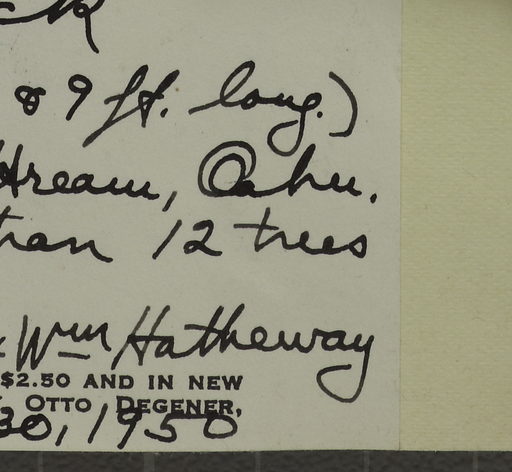 & 9 ft. long.)
stream, Oahu.
than 12 trees
Wm Hatheway
$2.50 AND IN NEW
OTTO DEGENER,
30, 1950